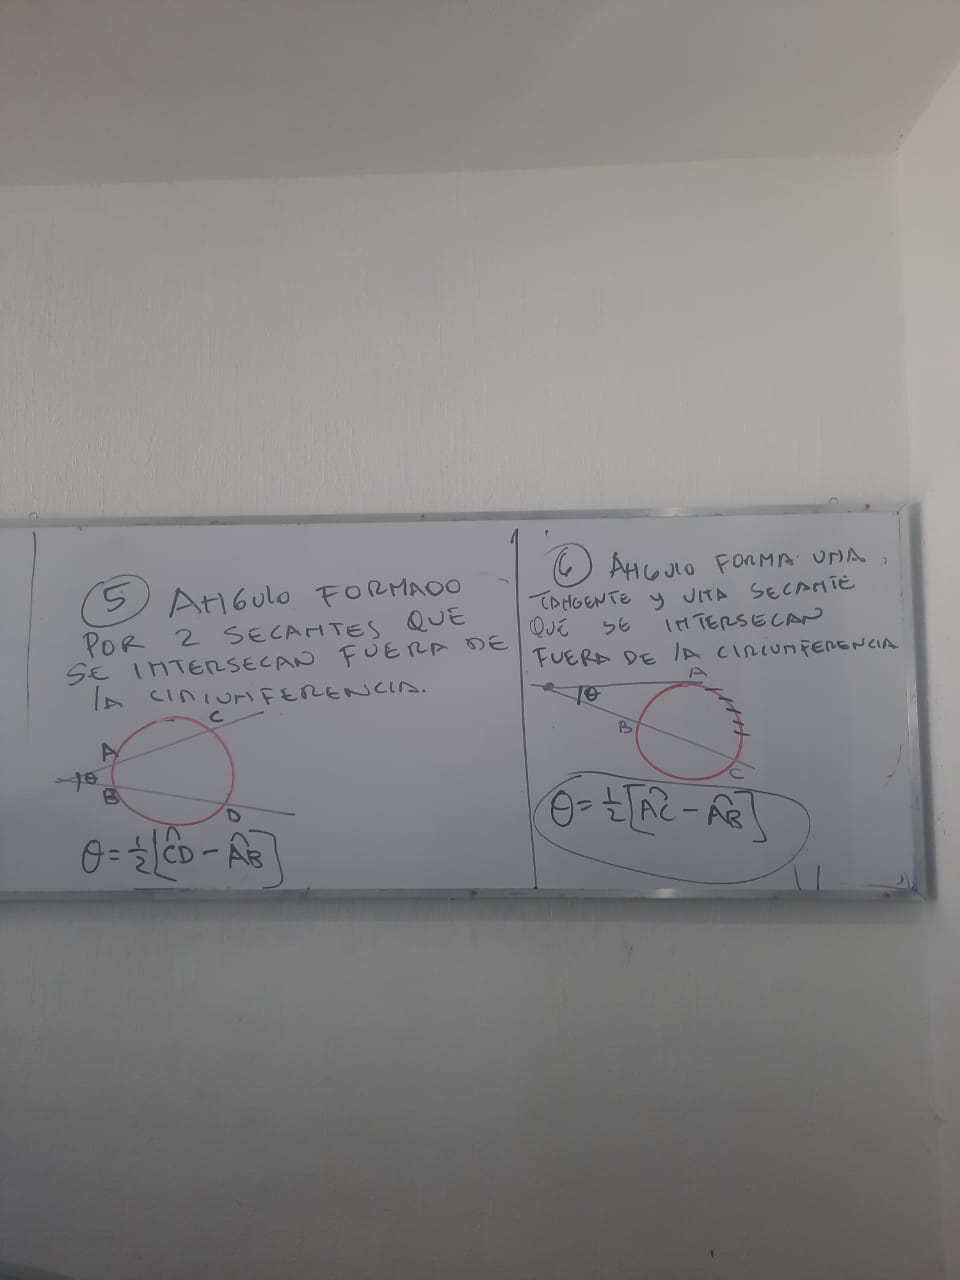 5 ANGULO FORMADO
POR 2 SECANTES QUE
SE INTERSECAN FUERA DE
lA CIRCUNFERENCIA.
C
A
θ
B
D
θ = 1/2 [CD - AB]
6 ANGULO FORMA. UNA
TANGENTE y UNA SECANTE
QUE SE INTERSECAN
FUERA DE lA CIRCUNFERENCIA
A
θ
B
C
θ = 1/2 [AC - AB]